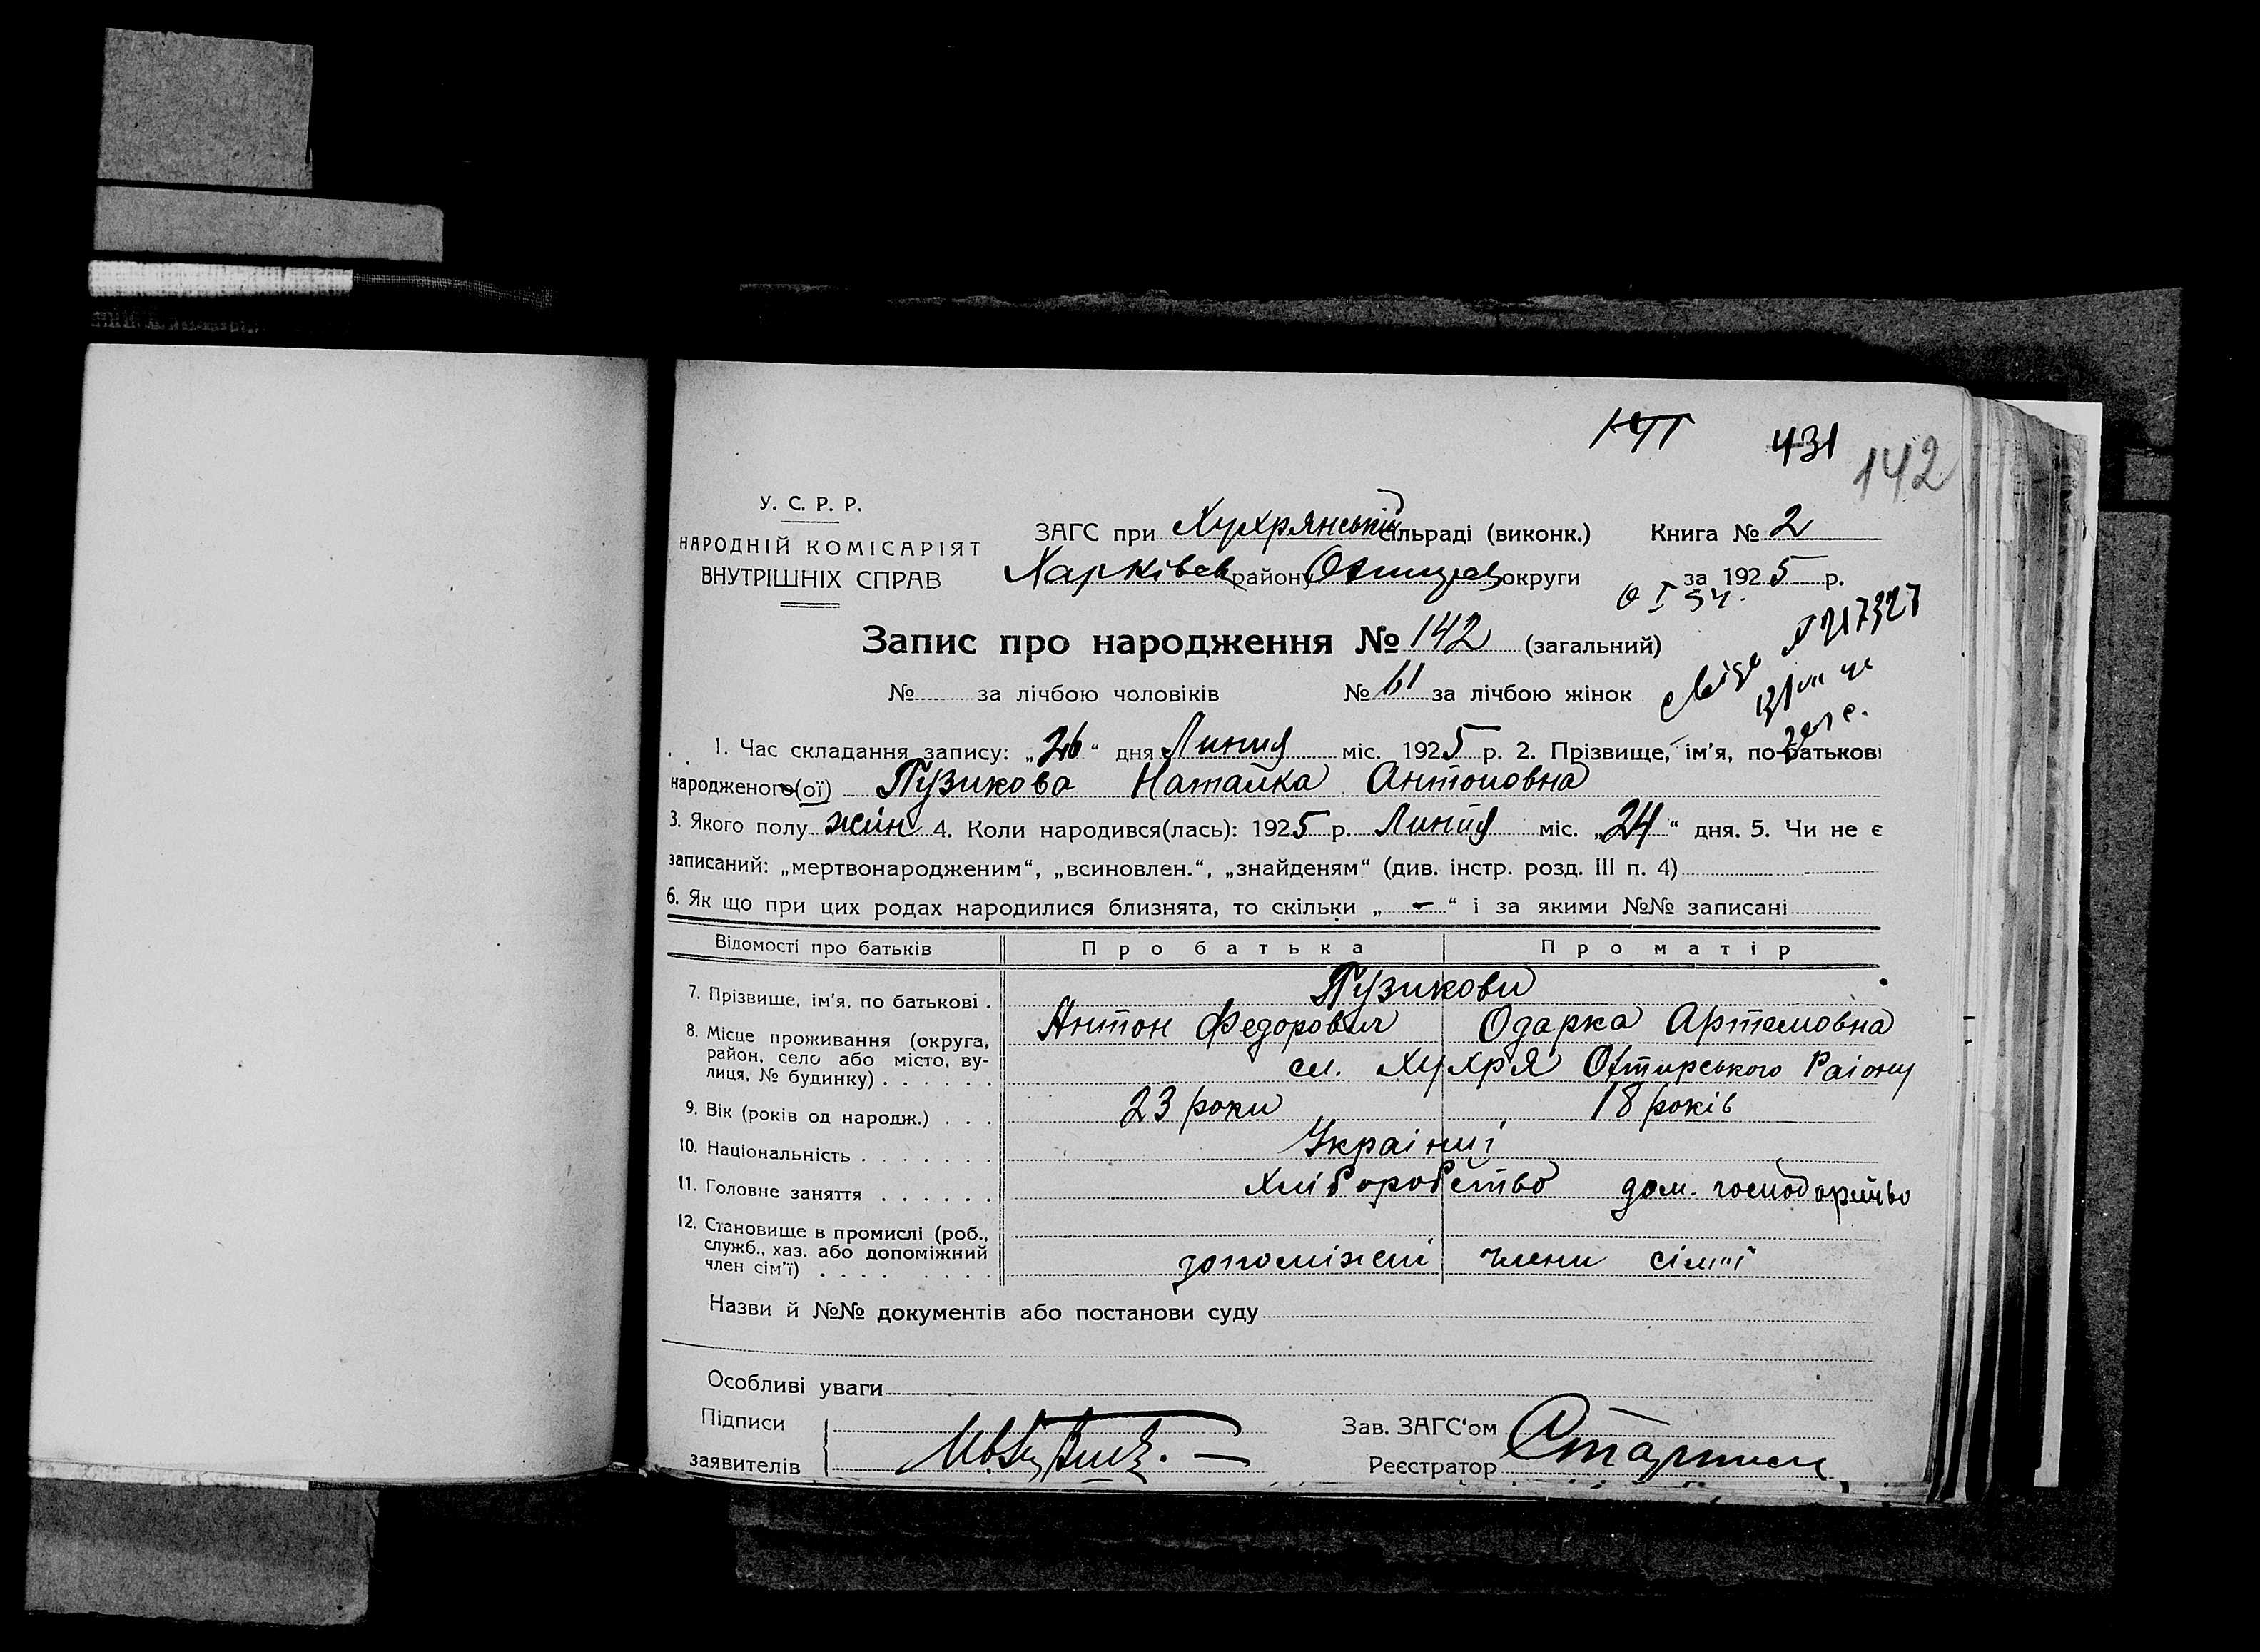 431 142
У. С. Р. Р.
НАРОДНІЙ КОМІСАРІЯТ
ВНУТРІШНІХ СПРАВ
ЗАГС при Хухрянській сільраді (виконк.) Книга № 2
Харківськ району Охтирської округи за 1925 р.
Запис про народження № 142 (загальний)
№ за лічбою чоловіків № 61 за лічбою жінок
1. Час складання запису: „26“ дня Липня міс. 1925 р. 2. Прізвище, ім'я, по батькові
народженого(ої) Пузикова Наталка Антоновна
3. Якого полу жін 4. Коли народився(лась): 1925 р. Липня міс. „24“ дня. 5. Чи не є
записаний: „мертвонародженим“, „всиновлен.“, „знайденям“ (див. інстр. розд. III п. 4)
6. Як що при цих родах народилися близнята, то скільки „ - “ і за якими №№ записані
Відомості про батьків Про батька Про матір
7. Прізвище, ім'я, по батькові . Пузикови
Антон Федорович Одарка Артемовна
8. Місце проживання (округа,
район, село або місто, ву-
лиця, № будинку) . . . . . . сл. Хухря Охтирського Раіону
9. Вік (років од народж.) . . . 23 роки 18 років
10. Національність . . . . . . . Украінці
11. Головне заняття . . . . . . хліборобство дом. господарство
12. Становище в промислі (роб.,
служб., хаз. або допоміжний
член сім'ї) . . . . . . . . допоміжні члени сімї
Назви й №№ документів або постанови суду
Особливі уваги
Підписи
заявителів
Зав. ЗАГС'ом
Реєстратор